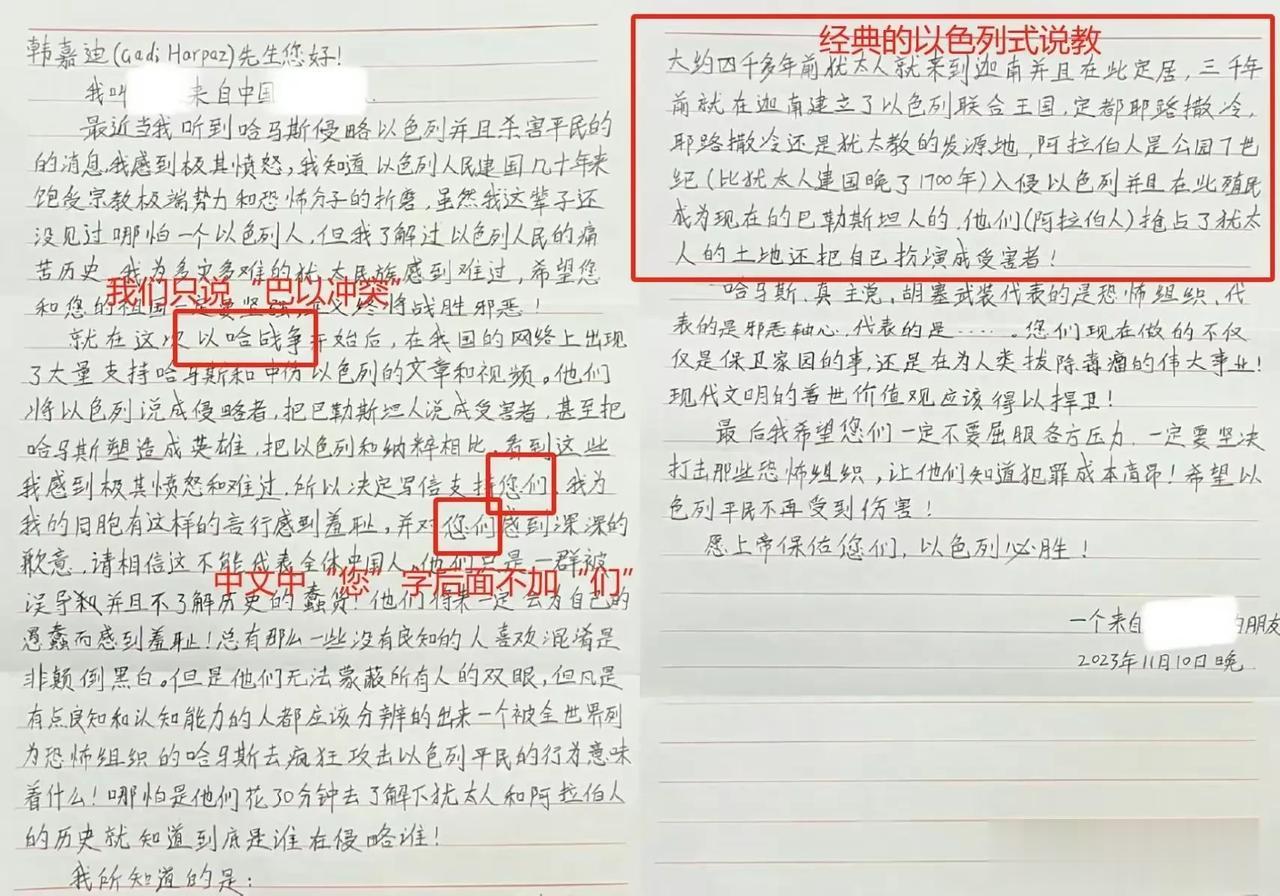 韩嘉迪(Gadi Harpaz)先生您好!
我叫 来自中国
最近当我听到哈马斯侵略以色列并且杀害平民的
的消息,我感到极其愤怒,我知道以色列人民建国几十年来
饱受宗教极端势力和恐怖分子的折磨,虽然我这辈子还
没见过哪怕一个以色列人,但我了解过以色列人民的痛
苦历史,我为多灾多难的犹太民族感到难过,希望您
我们只说“巴以冲突”
和您的祖国一定要坚强,终将战胜邪恶!
就在这次以哈战争开始后,在我国的网络上出现
了大量支持哈马斯和中伤以色列的文章和视频。他们
将以色列说成侵略者,把巴勒斯坦人说成受害者,甚至把
哈马斯塑造成英雄,把以色列和纳粹相比,看到这些
我感到极其愤怒和难过,所以决定写信支持您们,我为
我的同胞有这样的言行感到羞耻,并对您们感到深深的
歉意,请相信这不能代表全体中国人,他们只是一群被
中文中“您”字后面不加“们”
误导并且不了解历史的蠢货!他们将来一定会为自己的
愚蠢而感到羞耻!总有那么一些没有良知的人喜欢混淆是
非颠倒黑白。但是他们无法蒙蔽所有人的双眼,但凡是
有点良知和认知能力的人都应该分辨的出来一个被全世界列
为恐怖组织的哈马斯去疯狂攻击以色列平民的行为意味
着什么!哪怕是他们花30分钟去了解下犹太人和阿拉伯人
的历史就知道到底是谁在侵略谁!
我所知道的是:
经典的以色列式说教
大约四千多年前犹太人就来到迦南并且在此定居,三千年
前就在迦南建立了以色列联合王国,定都耶路撒冷,
耶路撒冷还是犹太教的发源地,阿拉伯人是公园7世
纪(比犹太人建国晚了1700年)入侵以色列并且在此殖民
成为现在的巴勒斯坦人的,他们(阿拉伯人)抢占了犹太
人的土地还把自己扮演成受害者!
哈马斯.真主党,胡塞武装代表的是恐怖组织,代
表的是邪恶轴心,代表的是……。您们现在做的不仅
仅是保卫家园的事,还是在为人类拔除毒瘤的伟大事业!
现代文明的普世价值观应该得以捍卫!
最后我希望您们一定不要屈服各方压力,一定要坚决
打击那些恐怖组织,让他们知道犯罪成本高昂!希望以
色列平民不再受到伤害!
愿上帝保佑您们,以色列必胜!
一个来自 的朋友
2023年11月10日晚